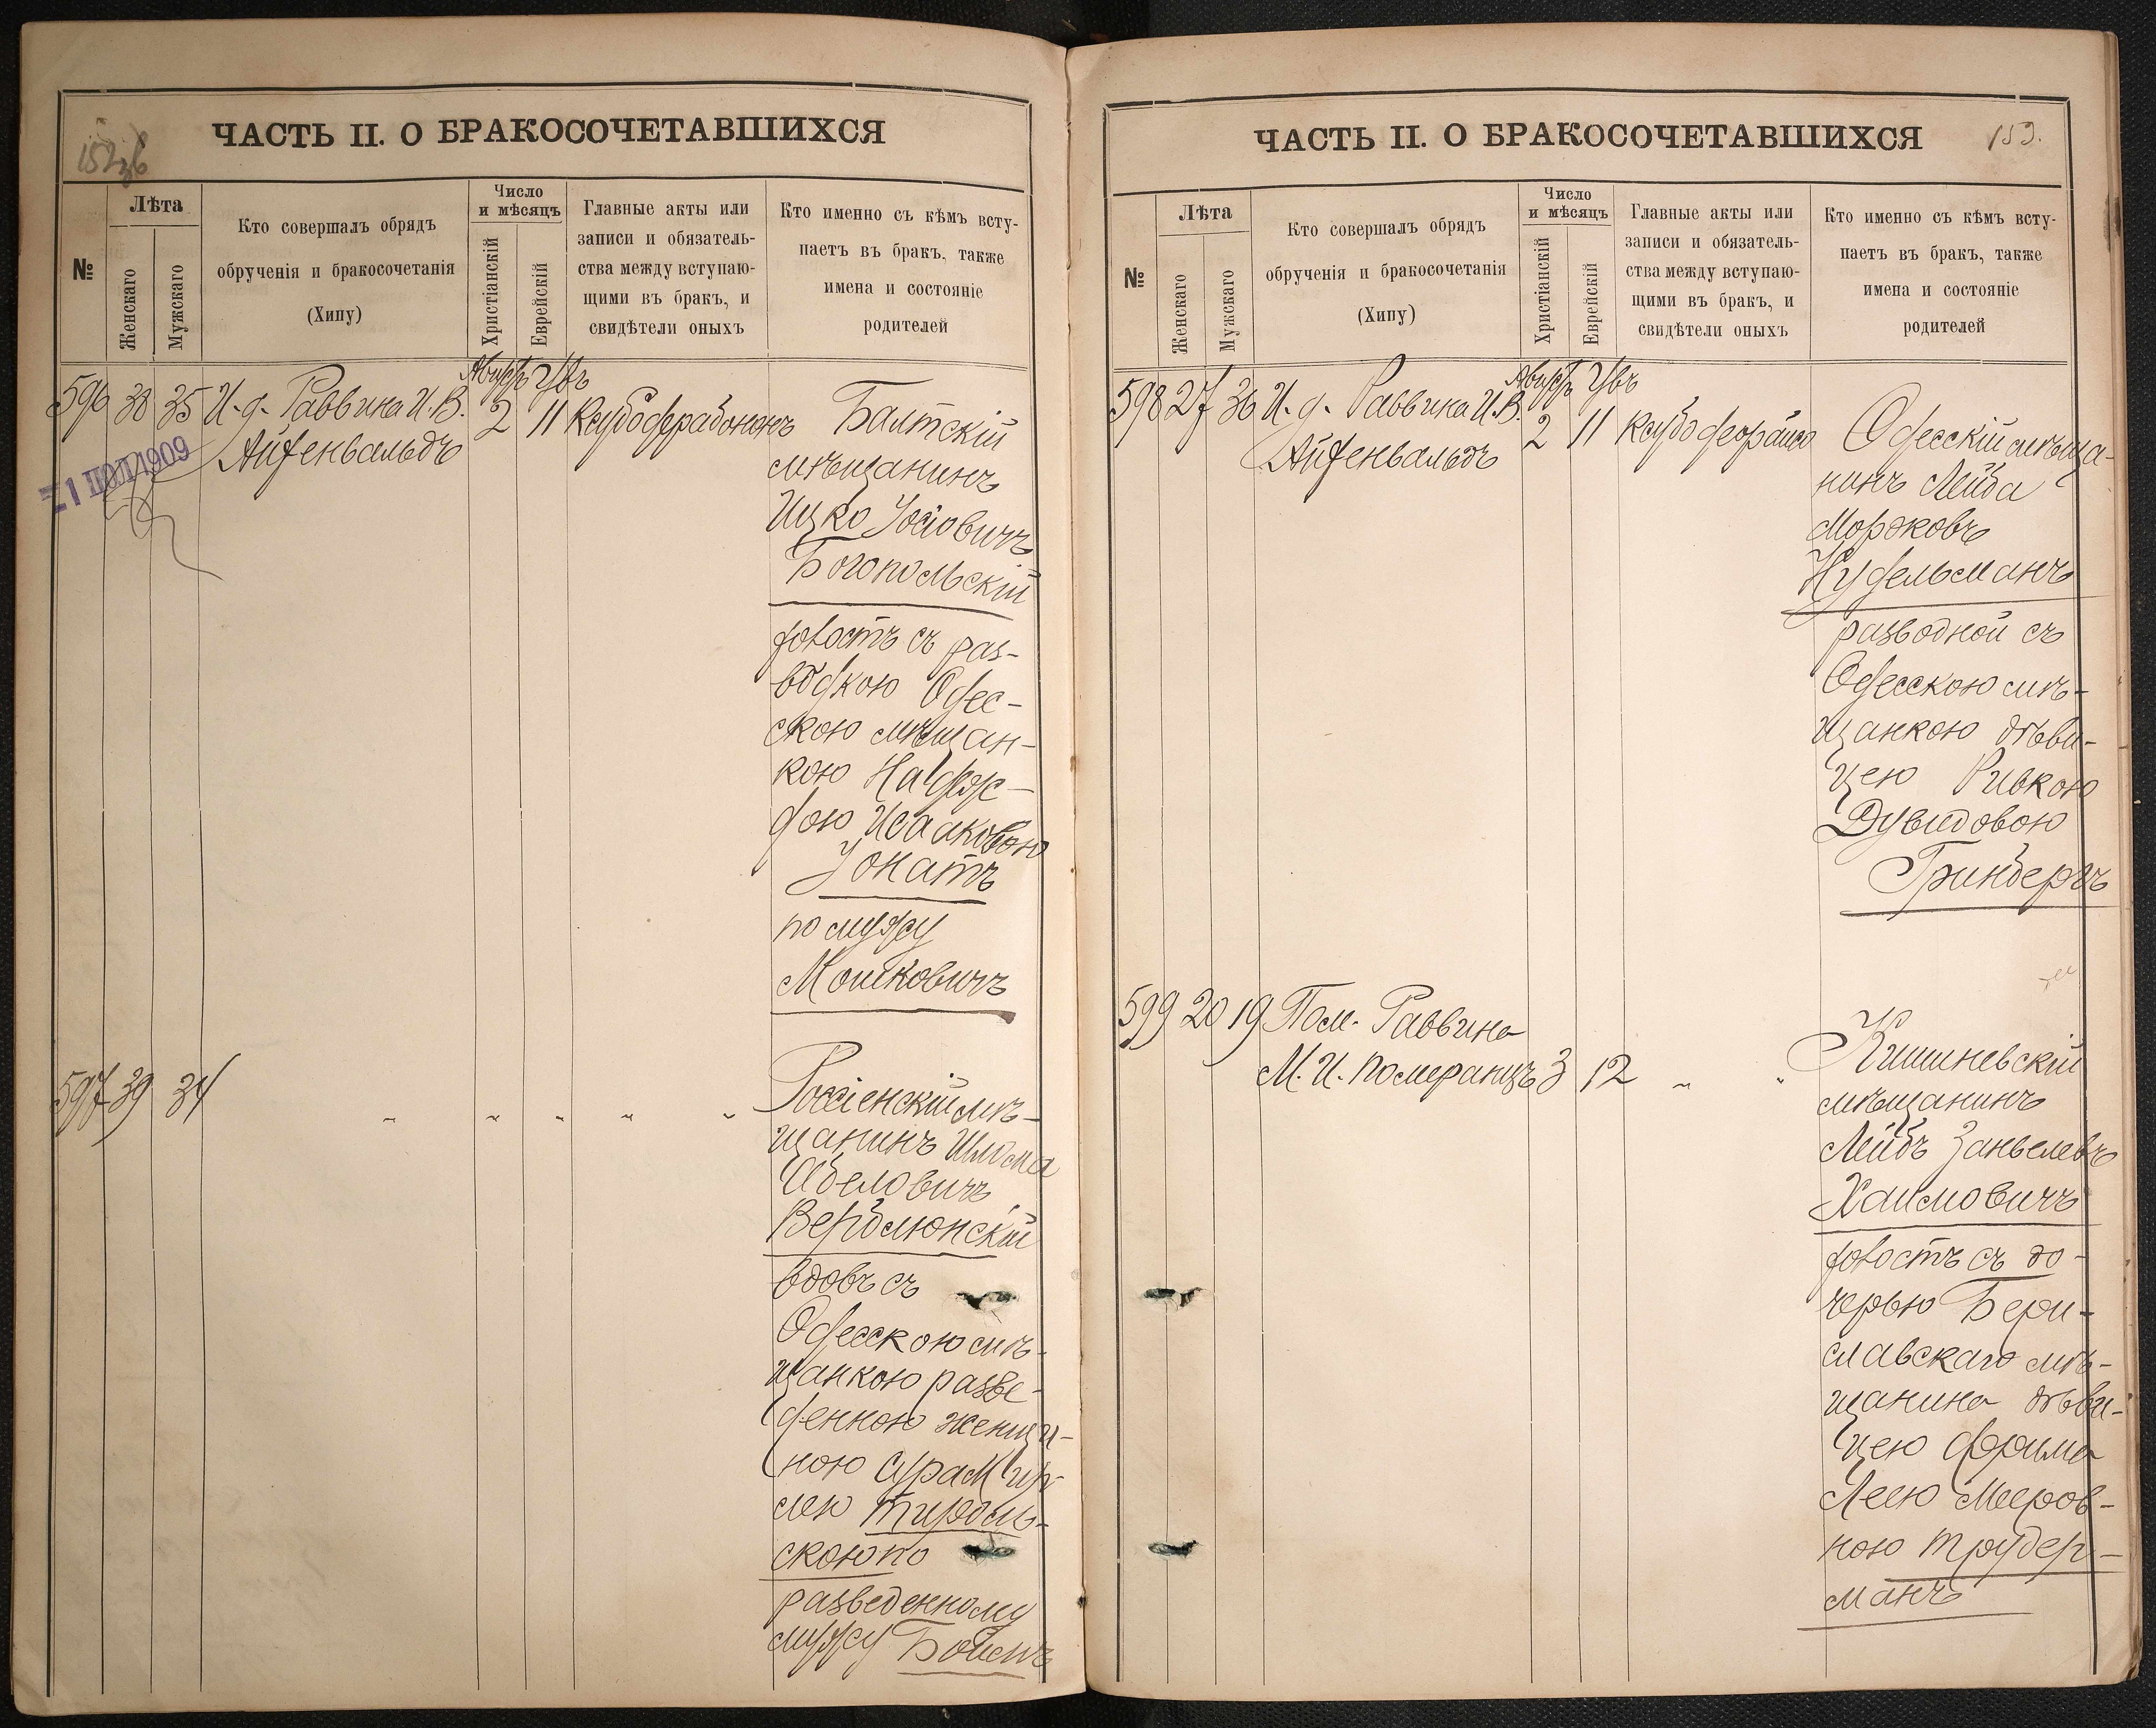 ЧАСТЬ II. О БРАКОСОЧЕТАВШИХСЯ
№
Лѣта
Женскаго
Мужскаго
Кто совершалъ обрядъ
обрученія и бракосочетанія
(Хипу)
Число
и мѣсяцъ
Христіанскій
Еврейскій
Главные акты или
записи и обязатель-
ства между вступаю-
щими въ бракъ, и
свидѣтели оныхъ
Кто именно съ кѣмъ всту-
паетъ въ бракъ, также
имена и состояніе
родителей
596 38 35 И. д. Раввина И. В.
Айзенвальдъ
Августъ
2 11
1 ІЮЛ 1909
Балтскій
мѣщанинъ
Ицко Іосіовичъ
Богопольскій
холостъ съ раз-
водкою Одес-
скою мѣщан-
кою Надеж-
дою Исааковою
Іонатъ
по мужу
Мошковичъ
597 39 34 " " " " "
Россіенскій мѣ-
щанинъ Шлома
Абеловичъ
Верблюнскій
вдовъ съ
Одесскою мѣ-
щанкою разве-
денною женщи-
ною Сура Мир-
лею Тироль-
скою по
разведенному
мужу
ЧАСТЬ II. О БРАКОСОЧЕТАВШИХСЯ
153.
№
Лѣта
Женскаго
Мужскаго
Кто совершалъ обрядъ
обрученія и бракосочетанія
(Хипу)
Число
и мѣсяцъ
Христіанскій
Еврейскій
Главные акты или
записи и обязатель-
ства между вступаю-
щими въ бракъ, и
свидѣтели оныхъ
Кто именно съ кѣмъ всту-
паетъ въ бракъ, также
имена и состояніе
родителей
598 27 36 И. д. Раввина И. В.
Айзенвальдъ
Августъ
2 11
Одесскій мѣща-
нинъ Лейба
Мордковъ
Нудельманъ
разводной съ
Одесскою мѣ-
щанкою дѣви-
цею Ривкою
Дувидовою
Гринбергъ
599 20 19 Пом. Раввина
М. И. Померанцъ 3 12 " "
Кишиневскій
мѣщанинъ
Лейбъ Занвелевъ
Хаимовичъ
холостъ съ до-
черью Бери-
славскаго мѣ-
щанина дѣви-
цею Фрима
Леею Мееров-
ною Трудер-
манъ